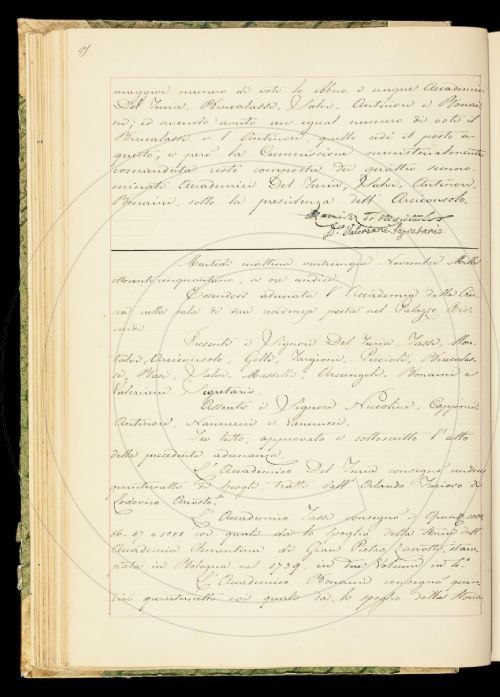 maggior numero di voti lo ebbero i cinque Accademici
Del Furia, Brucalassi, Salvi, Antinori e Bonai-
ni; ed avendo avuto un egual numero di voti il
Brucalassi e l'Antinori, quello cedè il posto a
questo, e però la Commissione ministerialmente
comandata restò composta dei quattro summo-
minati Accademici Del Furia, Salvi, Antinori,
Bonaini, sotto la presidenza dell'Arciconsolo.
F. Valeriani Segretario
Martedì mattina venticinque Novembre Mille
ottocento cinquantano, a ore undici.
Essendosi adunata l'Accademia della Cru-
sca nella sala di sua residenza posta nel Palazzo Ric-
cardi.
Presenti i Signori Del Furia, Tassi, Mon-
talvi, Arciconsolo, Gelli, Targioni, Piccioli, Brucalas-
si, Basi, Salvi, Masselli, Arcangeli, Bonaini e
Valeriani Segretario.
Assenti i Signori Niccolini, Capponi,
Antinori, Nannucci e Vannucci.
Fu letto, approvato e sottoscritto l'atto
della precedente adunanza.
L'Accademico Del Furia consegnò undici
quinternetti di spogli tratti dall'Orlando Furioso di
Lodovico Ariosto.
L'Accademico Tassi consegnò i
86. 87 e 1088 coi quali dà lo spoglio della Storia dell'
Accademia Clementina di Gian Pietro Zanotti, stam-
pata in Bologna nel 1739, in due Volumi in 4°.
L'Accademico Bonaini consegnò quin-
dici quinternetti coi quali dà lo spoglio della Storia